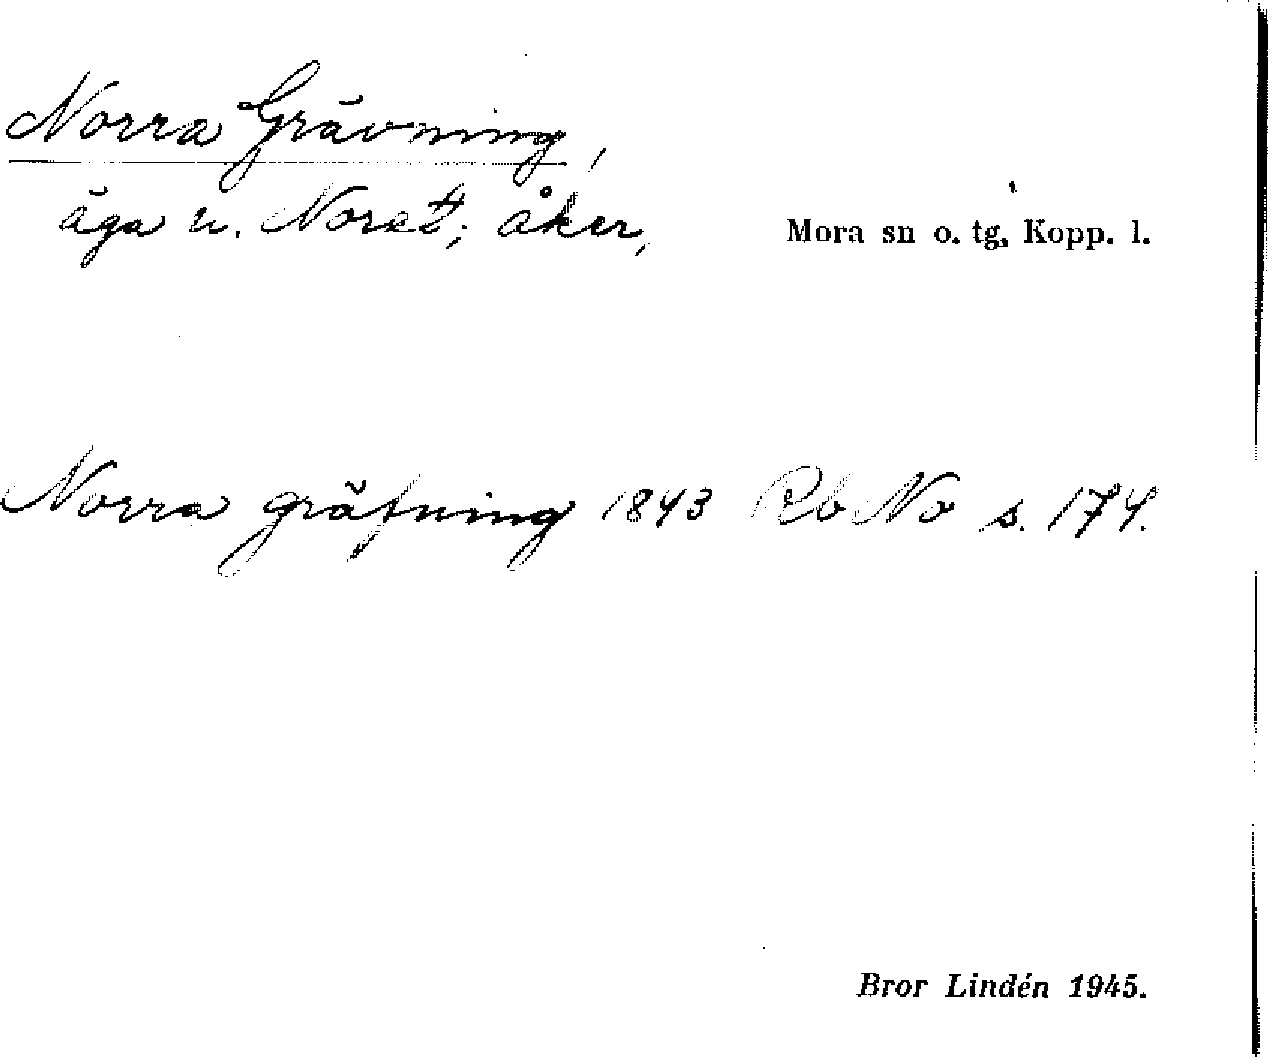 Norra Grävning,
äga u. Noret; åker,
Mora sn o. tg. Kopp. l.
Norra gräfning 1843 Rb No s. 174.
Bror Lindén 1945.